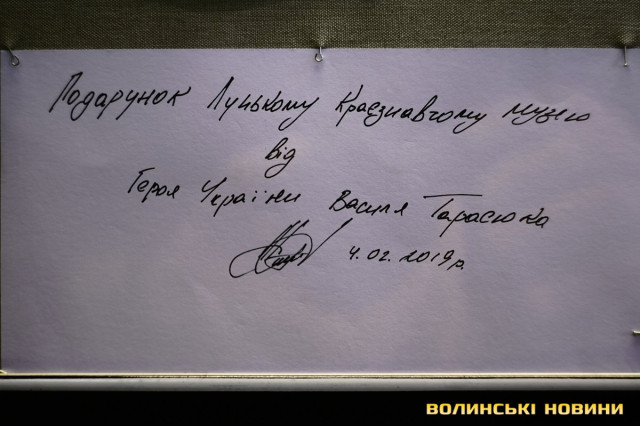 Подарунок Луцькому Краєзнавчому музею
від
Героя України Василя Тарасюка
4.02.2019р.
ВОЛИНСЬКІ НОВИНИ